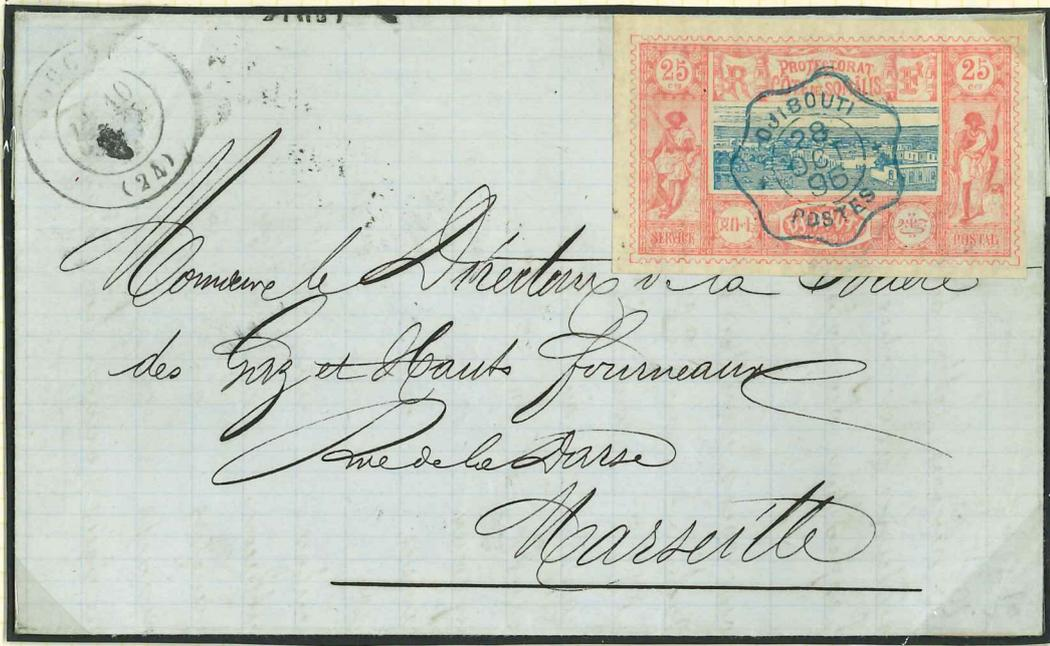 10
(24)
25 R PROTECTORAT F 25
CÔTE DE SOMALIS
DJIBOUTI
28
OC
96
POSTES
SERVICE POSTAL
Monsieur le Directeur de la Société
des Gaz et Hauts Fourneaux
Rue de la Darse
Marseille